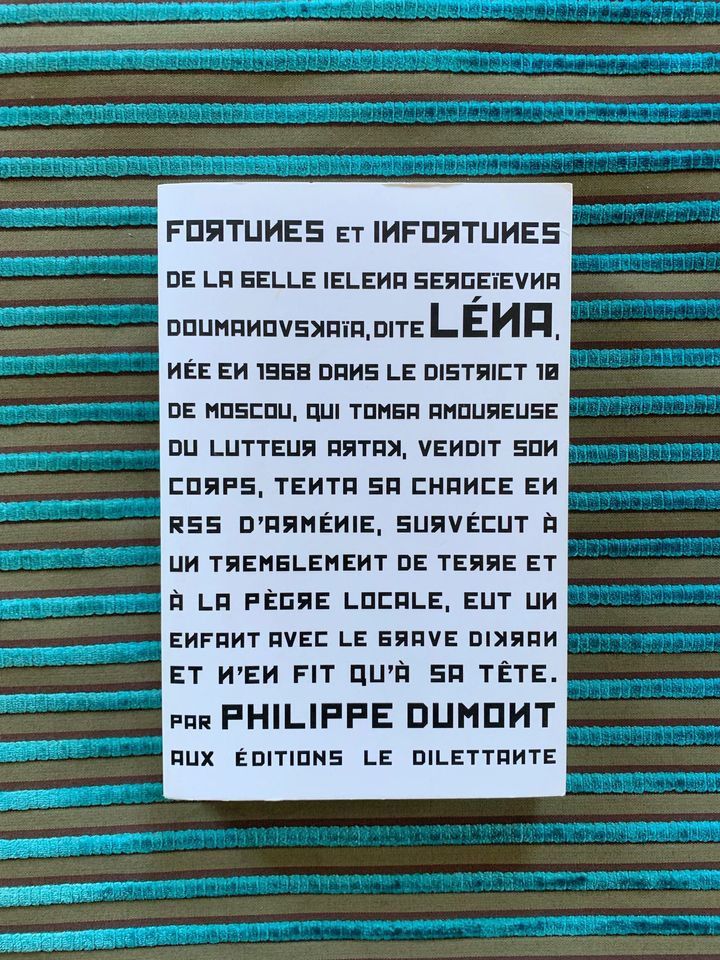 FORTUNES ET INFORTUNES
DE LA BELLE IELENA SERGEÏEVNA
DOUMANOVSKAÏA, DITE LÉNA,
NÉE EN 1968 DANS LE DISTRICT 10
DE MOSCOU, QUI TOMBA AMOUREUSE
DU LUTTEUR ARTAK, VENDIT SON
CORPS, TENTA SA CHANCE EN
RSS D'ARMÉNIE, SURVÉCUT À
UN TREMBLEMENT DE TERRE ET
À LA PÈGRE LOCALE, EUT UN
ENFANT AVEC LE GRAVE DIKRAN
ET N'EN FIT QU'À SA TÊTE.
PAR PHILIPPE DUMONT
AUX ÉDITIONS LE DILETTANTE